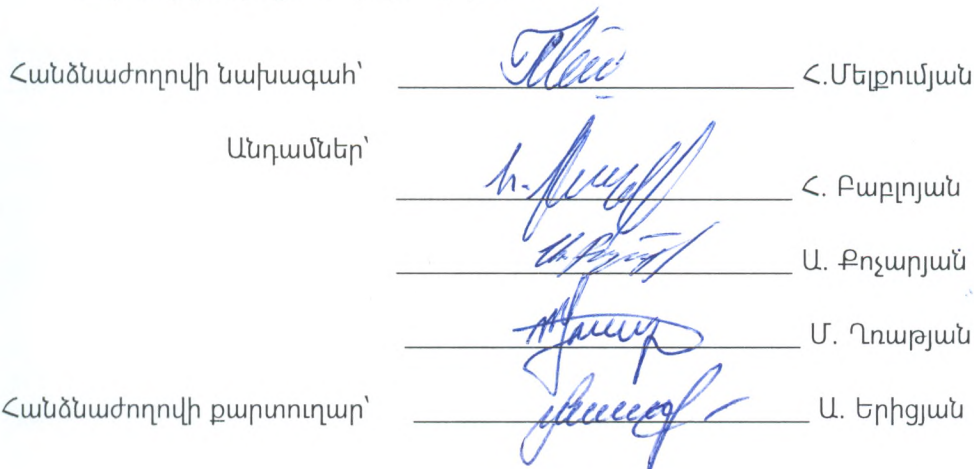 Հանձնաժողովի նախագահ՝ Հ.Մելքումյան
Անդամներ՝
Հ. Բաբլոյան
Ա. Քոչարյան
Մ. Ղռաթյան
Հանձնաժողովի քարտուղար՝ Ա. Երիցյան